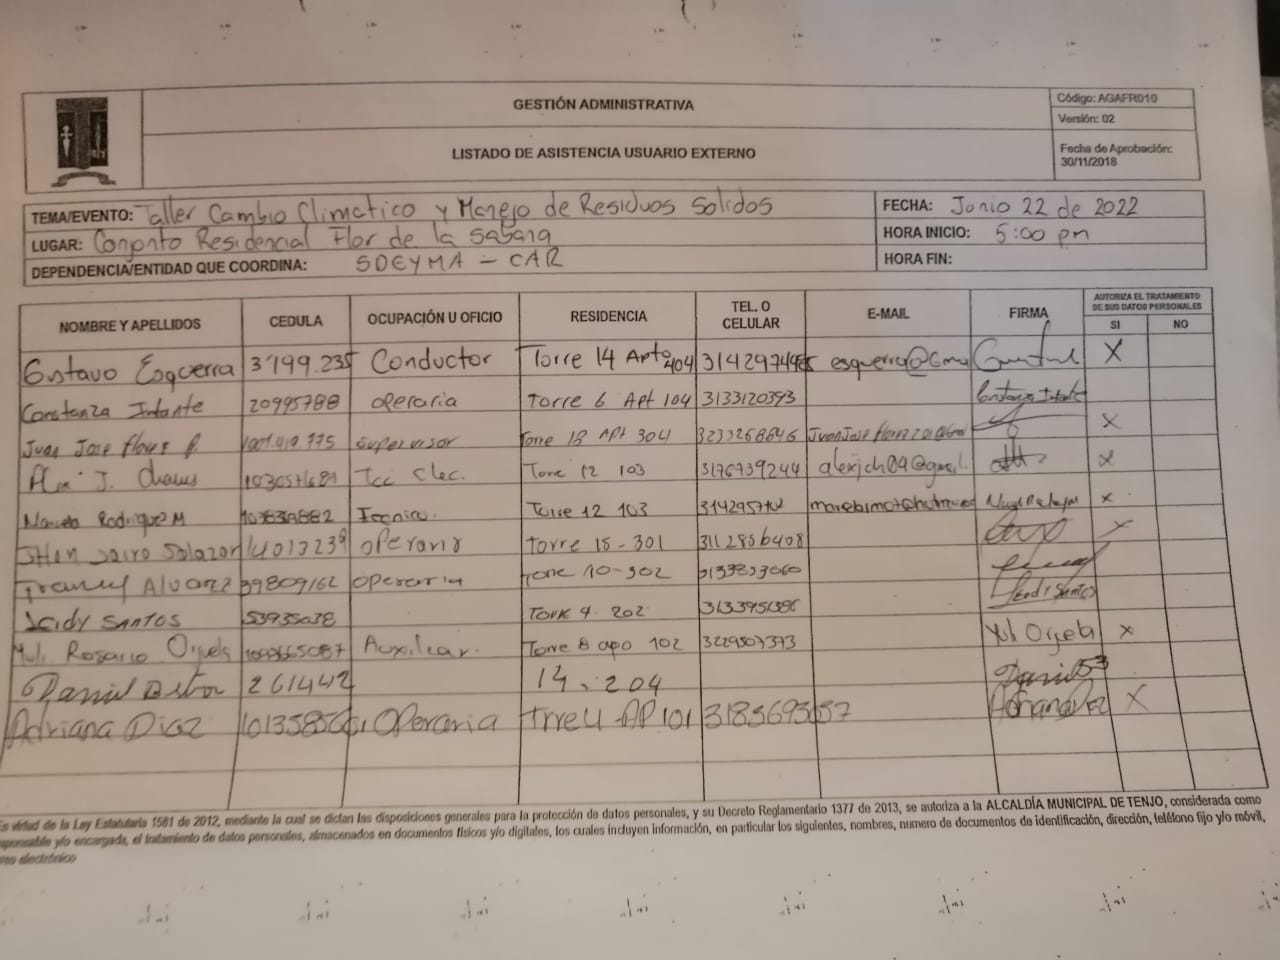 GESTIÓN ADMINISTRATIVA
Código: AGAFR010
Versión: 02
LISTADO DE ASISTENCIA USUARIO EXTERNO
Fecha de Aprobación:
30/11/2018
TEMA/EVENTO: Taller Cambio Climatico y Manejo de Residuos Solidos
FECHA: Junio 22 de 2022
LUGAR: Conjunto Residencial Flor de la Sabana
HORA INICIO: 5:00 pm
DEPENDENCIA/ENTIDAD QUE COORDINA: SDEYMA - CAR
HORA FIN:
NOMBRE Y APELLIDOS CEDULA OCUPACIÓN U OFICIO RESIDENCIA TEL. O CELULAR E-MAIL FIRMA AUTORIZA EL TRATAMIENTO DE SUS DATOS PERSONALES SI NO
Gustavo Esguerra 3'199.235 Conductor Torre 14 Apto 404 esguerra@Gma X
Constanza Infante 20995788 operaria Torre 6 Apt 104 3133120393 Constanza Infante
Juan Jose flores P. supervisor Torre 18 APt 304 3233268846 X
J. Tec Elec. Torre 12 103 3176739244 alexjch09@gmail. X
Rodriguez M Tecnico. Torre 12 103 X
Jairo Salazar operario torre 15-301 X
Alvarez 39809162 operaria Torre 10-302
Leidy SANTOS 53935038 Torre 4 202 3133951386 Leidi Santos
Yuli Rosario Orjuela Auxiliar. Torre 8 apo 102 3229507373 Yuli Orjuela X
Daniel 261442 14. 204 Daniel
Adriana Diaz Operaria AP 101 Adriana Diaz X
En virtud de la Ley Estatutaria 1581 de 2012, mediante la cual se dictan las disposiciones generales para la protección de datos personales, y su Decreto Reglamentario 1377 de 2013, se autoriza a la ALCALDÍA MUNICIPAL DE TENJO, considerada como
responsable y/o encargada, el tratamiento de datos personales, almacenados en documentos físicos y/o digitales, los cuales incluyen información, en particular los siguientes, nombres, numero de documentos de identificación, dirección, teléfono fijo y/o móvil,
correo electrónico